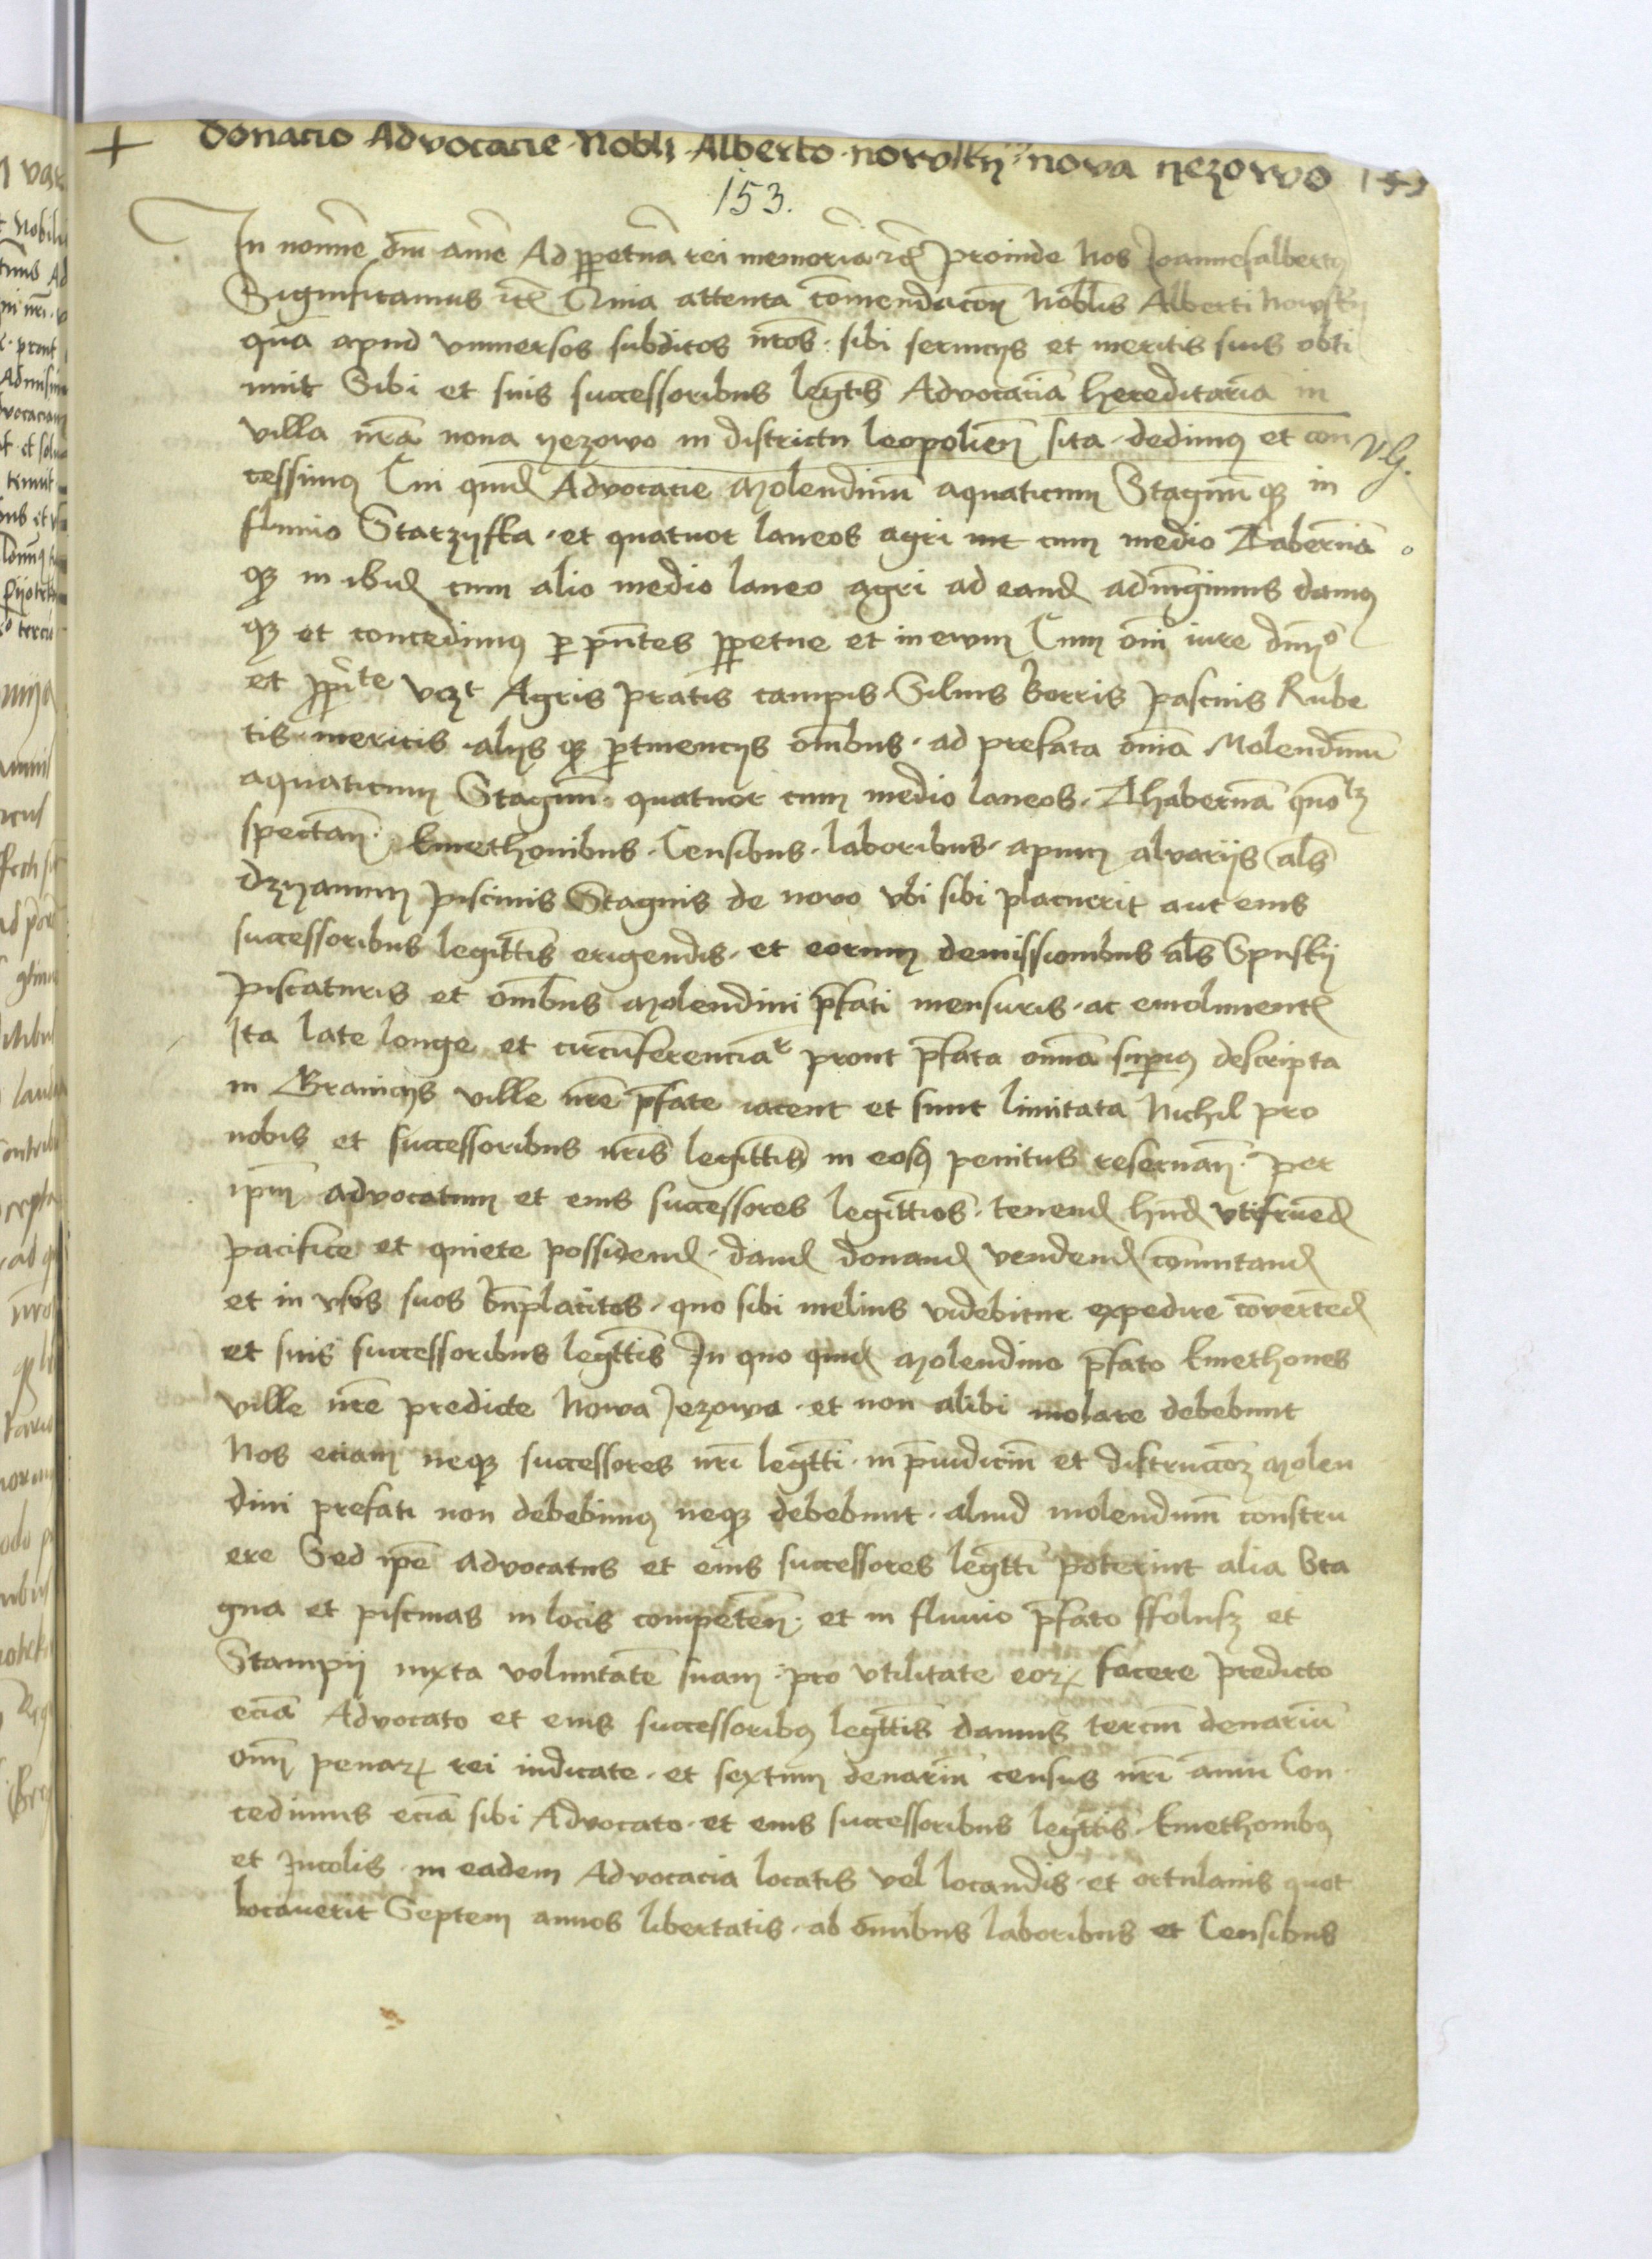 + Donacio Advocacie Nobli Alberto nowskij nova yezowo
153.
In nomine dni ame Ad ppetua rei memoria rc Proinde Nos Joannes albertus
Significamus rc Quia attenta comendacon Noblis Alberti Nowskij
qua apud vniuersos subditos nros sibi seruicys et meritis suis obti
nuit Sibi et suis successoribus legttis Advocacia hereditaria in
villa nra nova yezowo in districtu leopolien sita dedimus et con
cessimus Cui quid Advocacie Molendinu aquaticum Stagnu qz in
fluuio Starzyska et quatuor laneos agri cum medio Taberna
qz in ibid cum alio medio laneo agri ad eand adiungimus damus
qz et concedimus p pntes ppetue et in ewum Cum oni iure dnio
et pprite vczt Agris pratis campis Siluis Borris pascuis Rube
tis mericis alijs qz ptinencijs omibus ad prefata omia Molendinu
aquaticum Stagnu quatuor cum medio laneos Thaberna quolz
spectan kmethonibus Censibus laboribus apum alvarijs als
dzyanum piscinis Stagnis de novo vbi sibi placuerit aut eius
successoribus legittis erigendis et eorum demissionibus als Spusthy
piscaturis et omibus Molendini pfati mensuris ac emoliment
Ita late longe et circuferenciar prout pfata omia supius descripta
in Granicijs ville nre pfate iacent et sunt limitata Nichil pro
nobis et successoribus nris legittis in eosq penitus reseruan per
ipm advocatum et eius successores legittios tenend hnd vtifruend
pacifice et quiete possidend dand donand vendend comutand
et in vsus suos bnplacitos quo sibi melius videbitur expedire covertend
et suis successoribus legttis In quo quid Molendino pfato kmethones
ville nre predicte Nowa Jezowa et non alibi molare debebunt
Nos eciam neqz successores nri legtti in piudiciu et distruccoz Molen
dini prefati non debebimus neqz debebunt aliud molendinu constru
ere Sed ipe advocatus et eius successores legtti poterint alia Sta
gna et piscinas in locis competen et in fluuio pfato ffolusz et
Stampij iuxta voluntate suam pro vtilitate eorz facere predicto
ecia Advocato et eius successoribus legttis damus terciu denariu
oim penarz rei iudicate et sextum denariu census nri annu Con
cedimus ecia sibi Advocato et eius successoribus legttis kmethonibus
et Incolis in eadem Advocacia locatis vel locandis et ortulanis quot
locauerit Septem annos libertatis ab omibus laboribus et Censibus